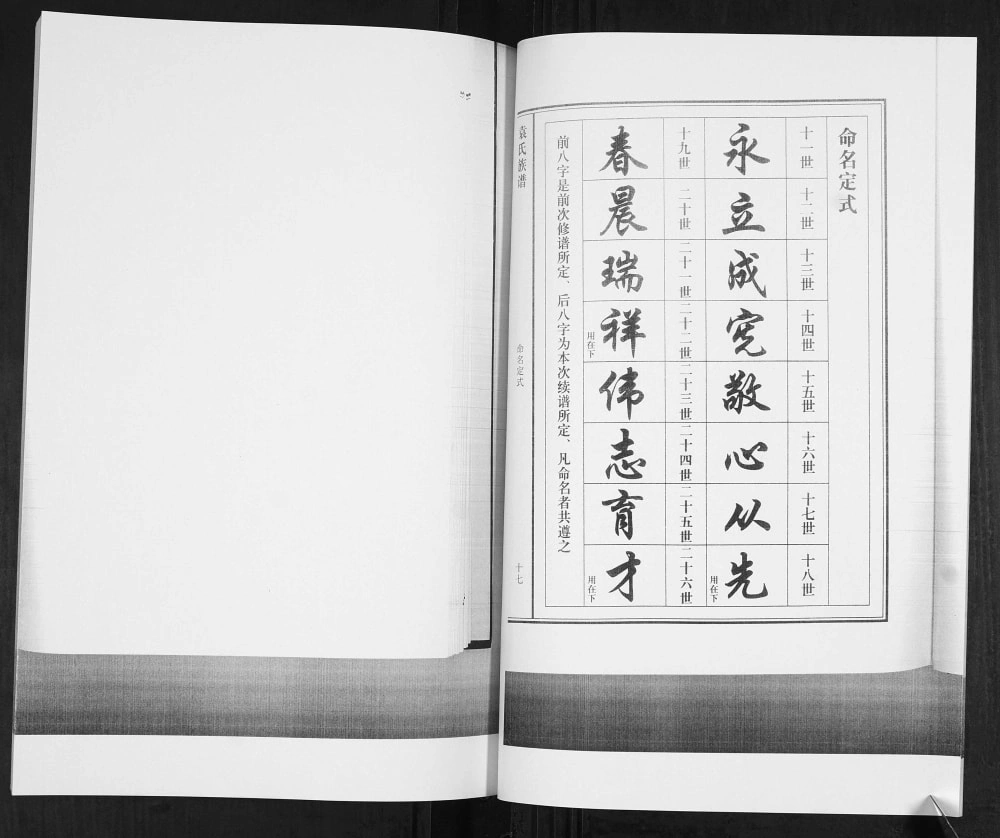 命名定式
十一世 十二世 十三世 十四世 十五世 十六世 十七世 十八世
永 立 成 宪 敬 心 从 先
用在下
十九世 二十世 二十一世 二十二世 二十三世 二十四世 二十五世 二十六世
春 晨 瑞 祥 伟 志 育 才
用在下
用在下
前八字是前次修谱所定、后八字为本次续谱所定、凡命名者共遵之
袁氏族谱
命名定式
十七